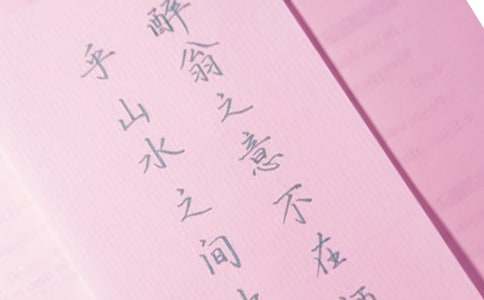 醉翁之意不在
乎山水之间